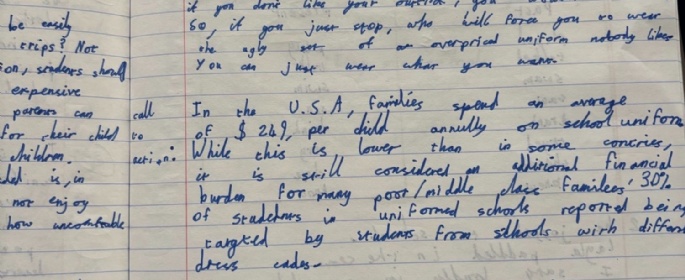 if you dont like your outfit, you
So, if you just stop, who will force you to wear
the ugly set of an overprical uniform nobody likes
You can just wear what you want.
be easily
trips? Not
ion, students should
expensive
parents can
for their child
children.
del is, in
not enjoy
how uncomfortable
call
to
action:
In the U.S.A, families spend an average
of $ 249, per child annully on school uniform
While this is lower than in some concries,
it is still considered an additional financial
burden for many poor/middle class families. 30%
of studetnts in uniformed schools reported being
targted by students from sthools with differn
dress codes.